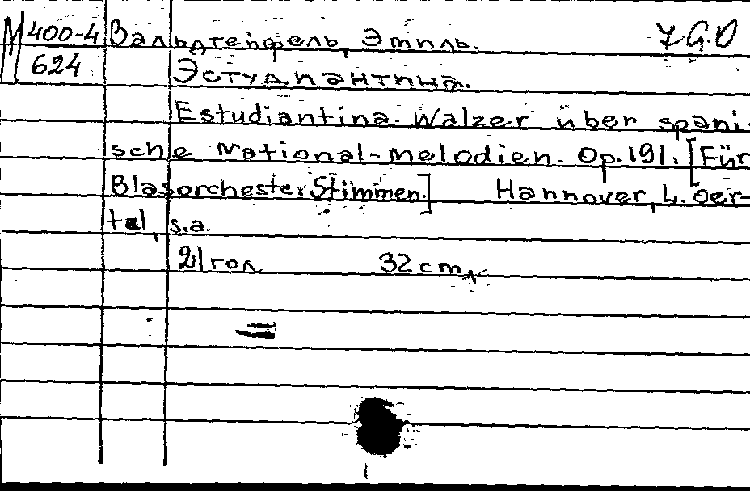 М 400-4 Вальдтейфель, Эмиль.
624 Эстудиантина.
Estudiantina. Walzer über spani-
sche National-Melodien. Op. 191. [Für
Blasorchester. Stimmen.] Hannover, L. Oer-
tel, s.a.
21 гол. 32 cm.